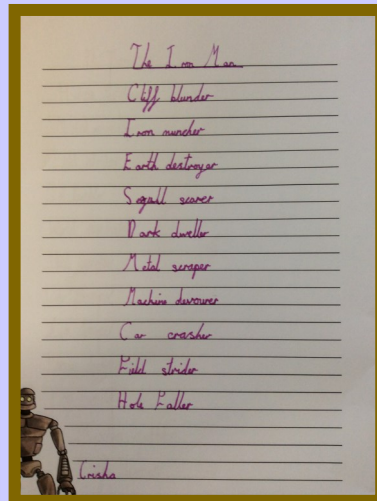 The Iron Man
Cliff blunder
Iron muncher
Earth destroyer
Segull scarer
Dark dweller
Metal scraper
Machine devourer
Car crasher
Field strider
Hole Faller
Crisha